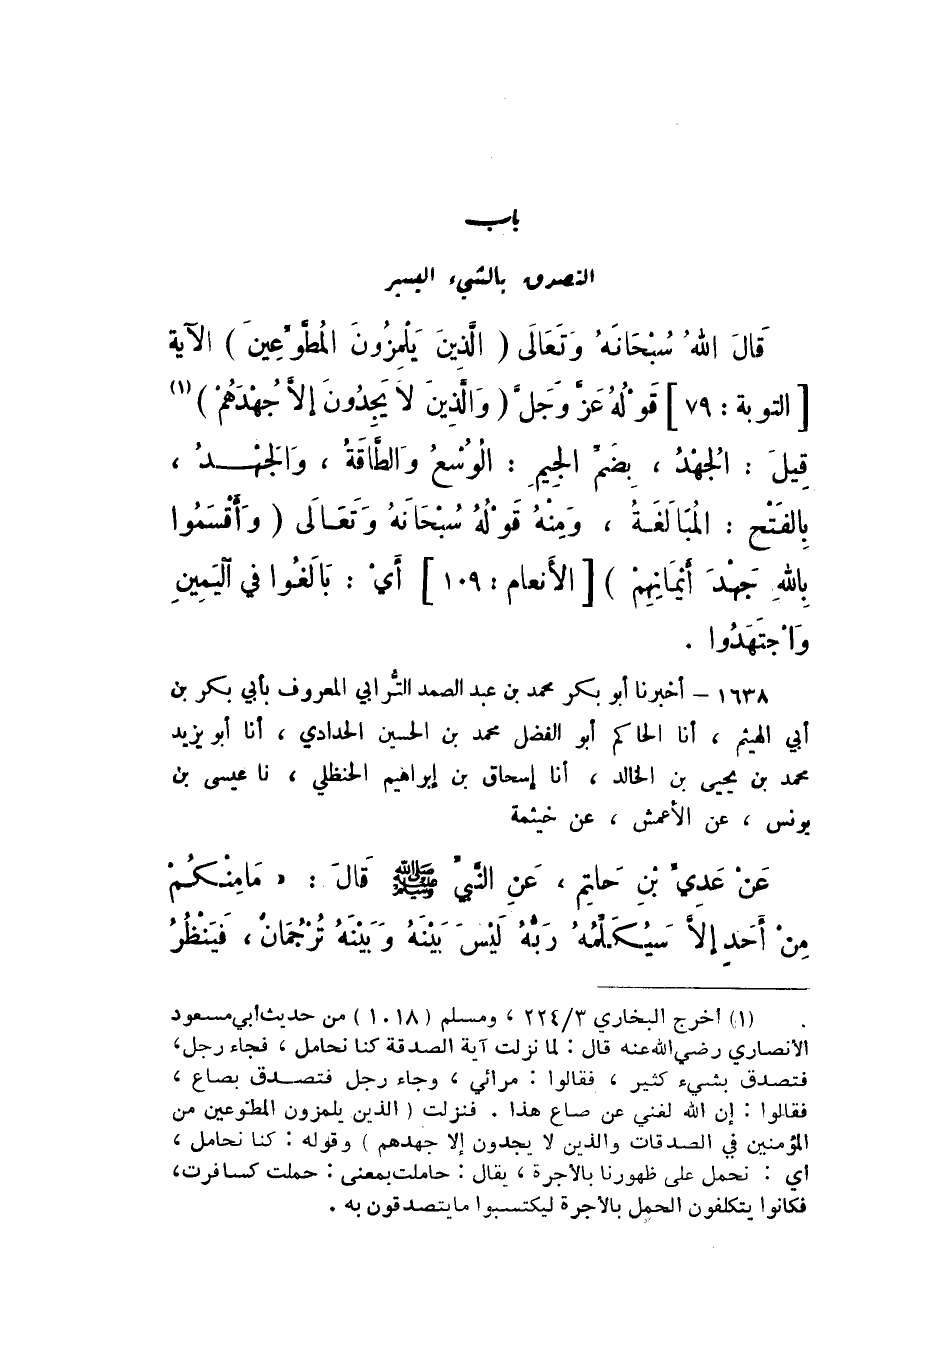 باب
التصدق بالشيء اليسير
قَالَ اللهُ سُبْحَانَهُ وَتَعَالَى ( الَّذِينَ يَلْمِزُونَ المُطَّوِّعِينَ ) الآية
[ التوبة : ٧٩ ] قَوْلُهُ عَزَّ وَجَلَّ ( وَالَّذِينَ لَا يَجِدُونَ إلاَّ جُهْدَهُمْ ) (١)
قِيلَ : الجُهْدُ ، بِضَمِّ الجِيمِ : الْوُسْعُ وَالطَّاقَةُ ، وَالجَهْدُ ،
بِالفَتْحِ : المُبَالَغَةُ ، وَمِنْهُ قَوْلُهُ سُبْحَانَهُ وَتَعَالَى ( وَأَقْسَمُوا
بِاللهِ جَهْدَ أَيْمَانِهِمْ ) [ الأنعام : ١٠٩ ] أَيْ : بَالَغُوا في اليَمِينِ
وَاجْتَهَدُوا .
١٦٣٨ – أخبرنا أبو بكر محمد بن عبد الصمد التُّرابي المعروف بأبي بكر بن
أبي الهيثم ، أنا الحاكم أبو الفضل محمد بن الحسين الحدادي ، أنا أبو يزيد
محمد بن يحيى بن الخالد ، أنا إسحاق بن إبراهيم الحنظلي ، نا عيسى بن
يونس ، عن الأعمش ، عن خيثمة
عَنْ عَدِيِّ بْنِ حَاتِمٍ ، عَنِ النَّبِيِّ ﷺ قَالَ : « مَا مِنْكُمْ
مِنْ أَحَدٍ إلاَّ سَيُكَلِّمُهُ رَبُّهُ لَيْسَ بَيْنَهُ وَبَيْنَهُ تُرْجُمَانٌ ، فَيَنْظُرُ
(١) أخرج البخاري ٢٢٤/٣ ، ومسلم ( ١٠١٨ ) من حديث أبي مسعود
الانصاري رضي الله عنه قال : لما نزلت آية الصدقة كنا نحامل ، فجاء رجل،
فتصدق بشيء كثير ، فقالوا : مرائي ، وجاء رجل فتصدق بصاع ،
فقالوا : إن الله لغني عن صاع هذا . فنزلت ( الذين يلمزون المطّوعين من
المؤمنين في الصدقات والذين لا يجدون إلا جهدهم ) وقوله : كنا نحامل ،
أي : نحمل على ظهورنا بالأجرة ، يقال : حاملت بمعنى : حملت كسافرت،
فكانوا يتكلفون الحمل بالأجرة ليكتسبوا ما يتصدقون به .